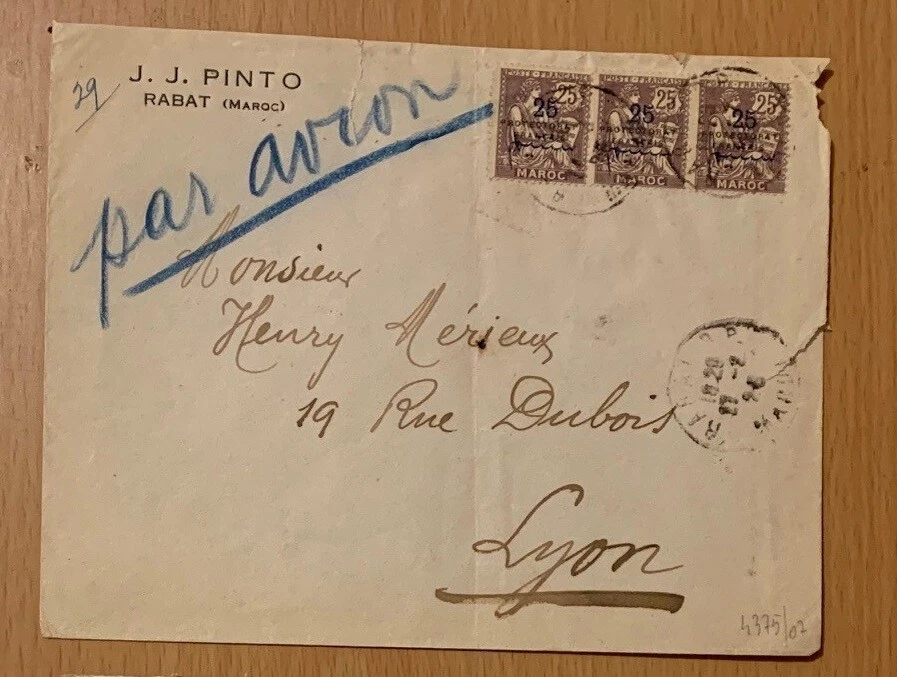 J. J. PINTO
RABAT (MAROC)
29
par avion
POSTE FRANÇAISE POSTE FRANÇAISE POSTE FRANÇAISE
25 25 25
25 25 25
PROTECTORAT PROTECTORAT PROTECTORAT
FRANÇAIS FRANÇAIS FRANÇAIS
MAROC MAROC MAROC
Monsieur
Henry Mérieux
19 Rue Dubois
Lyon
RABAT R.P.
18 20
27 - 2
26
MAROC
4375/07